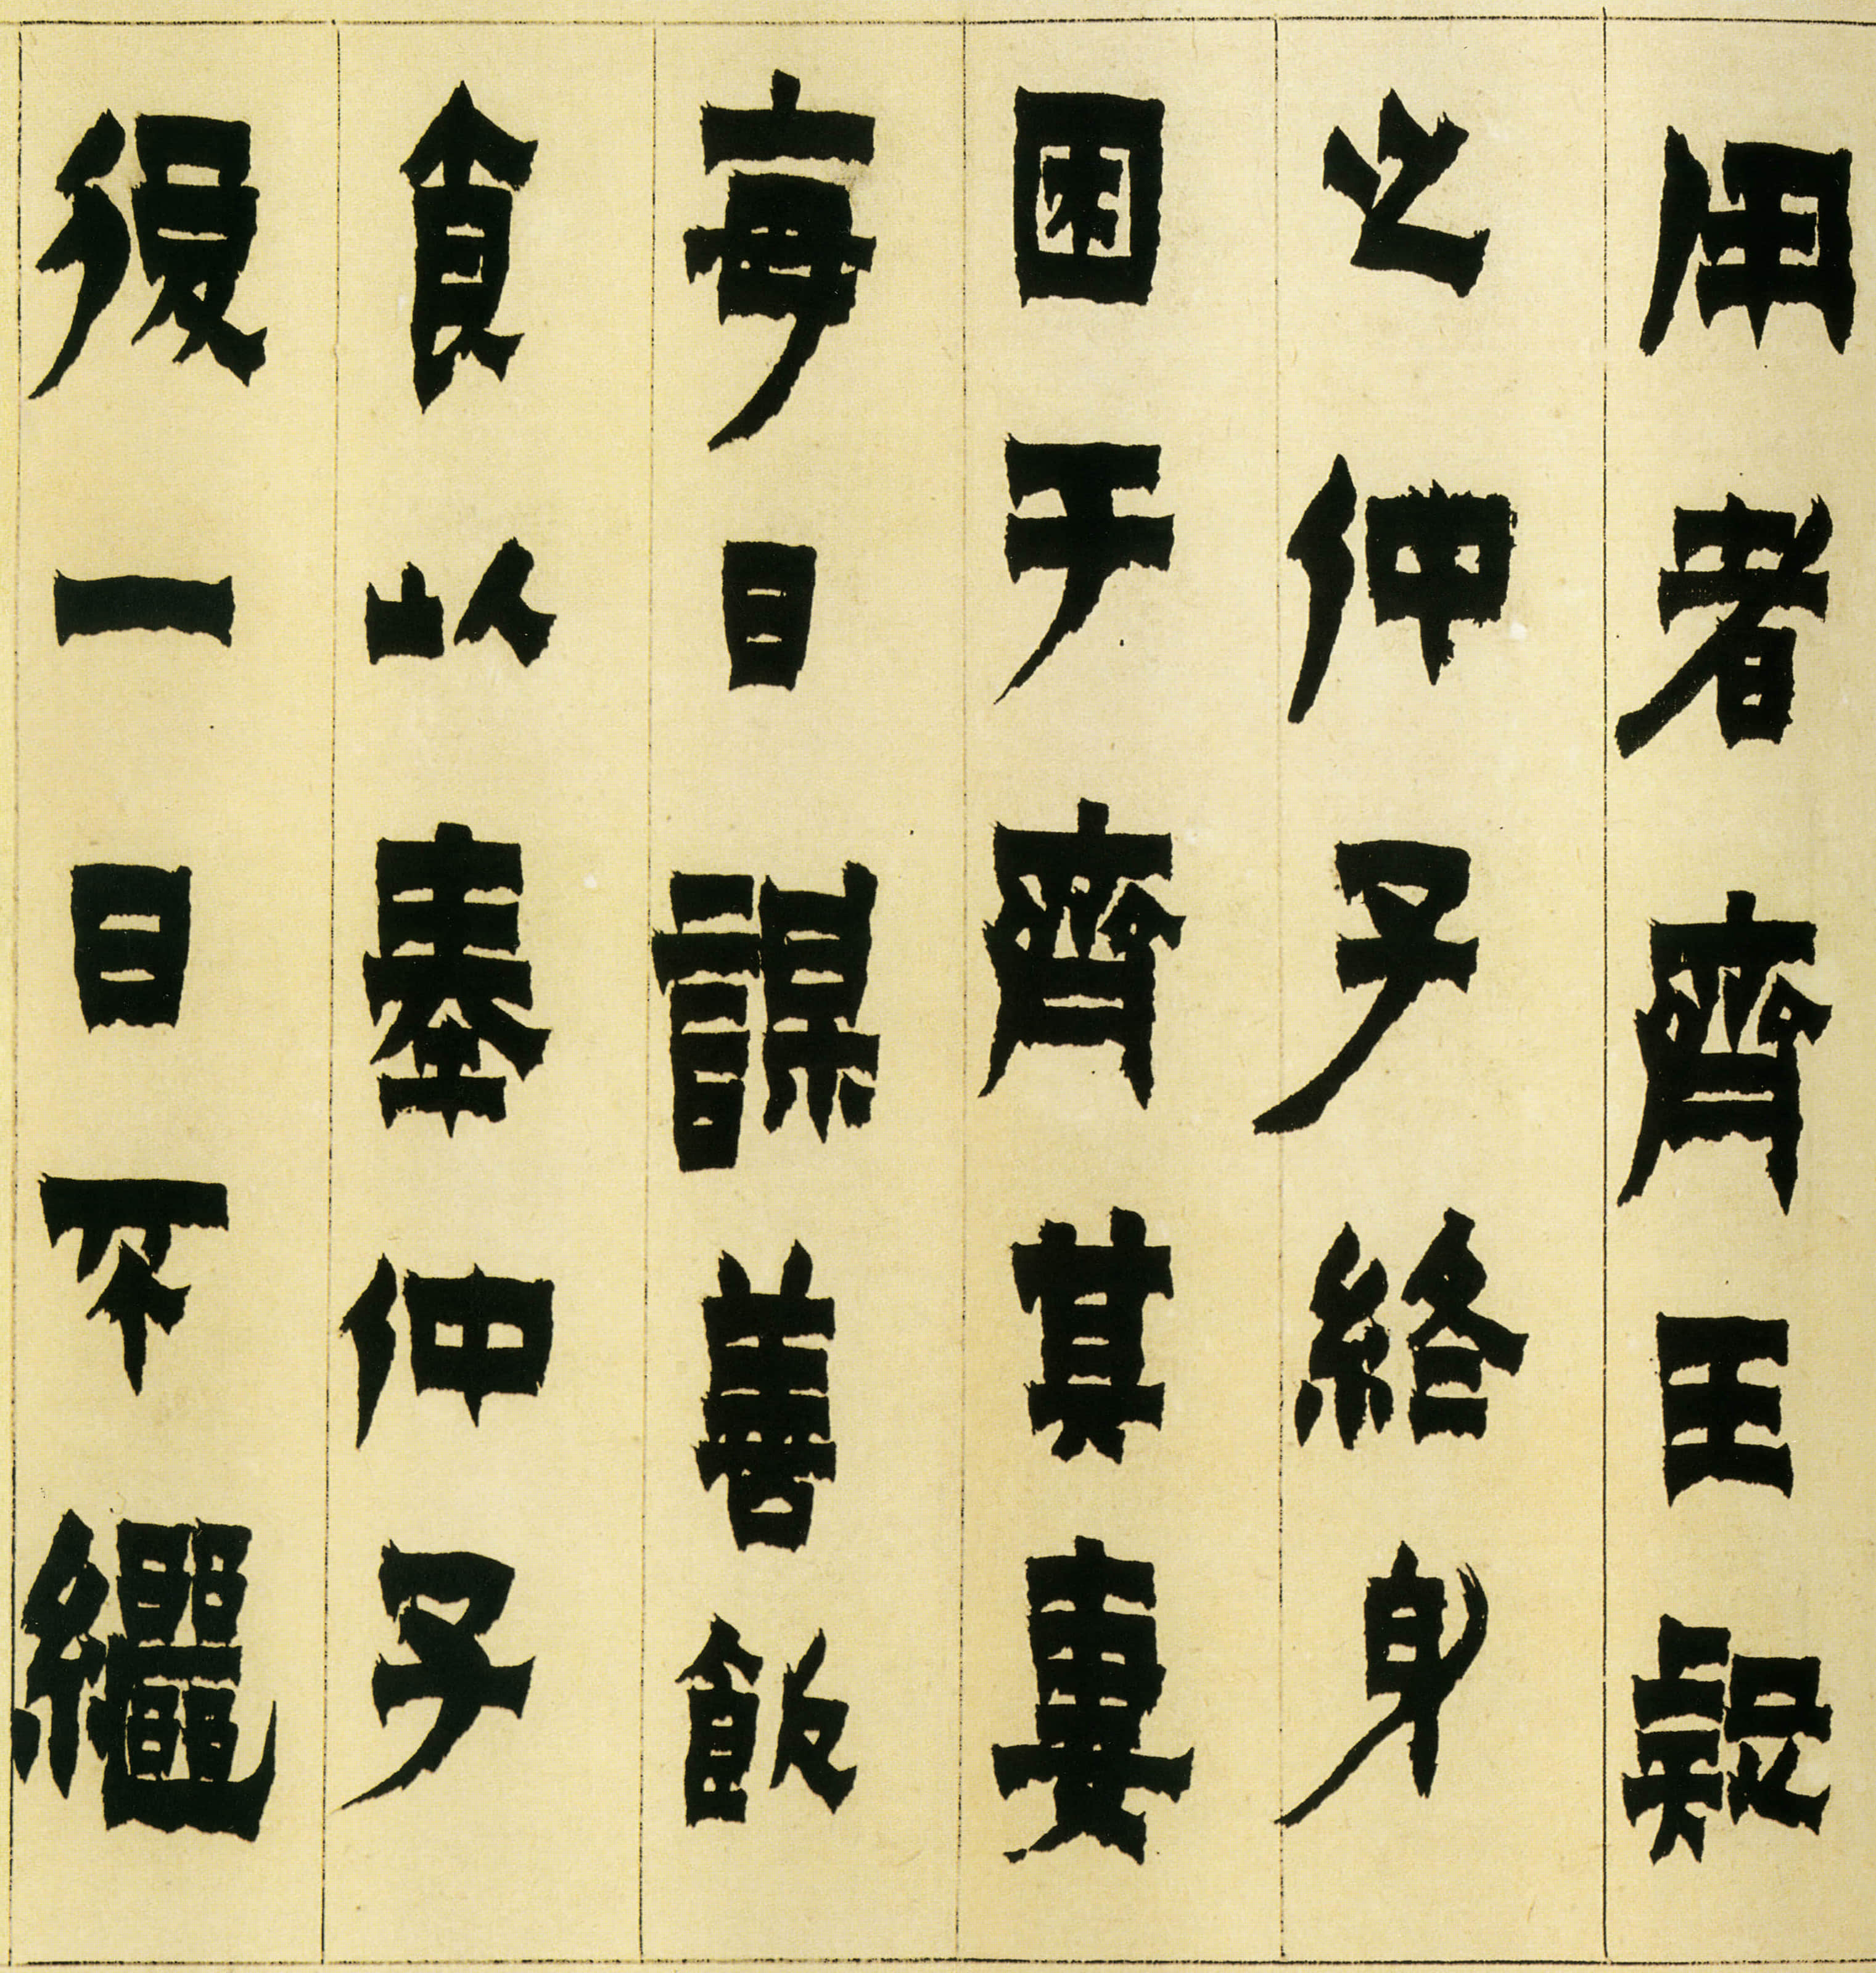 用者齊王疑
之仲子終身
困于齊其妻
每日謀善飯
食以奉仲子
復一日不繼